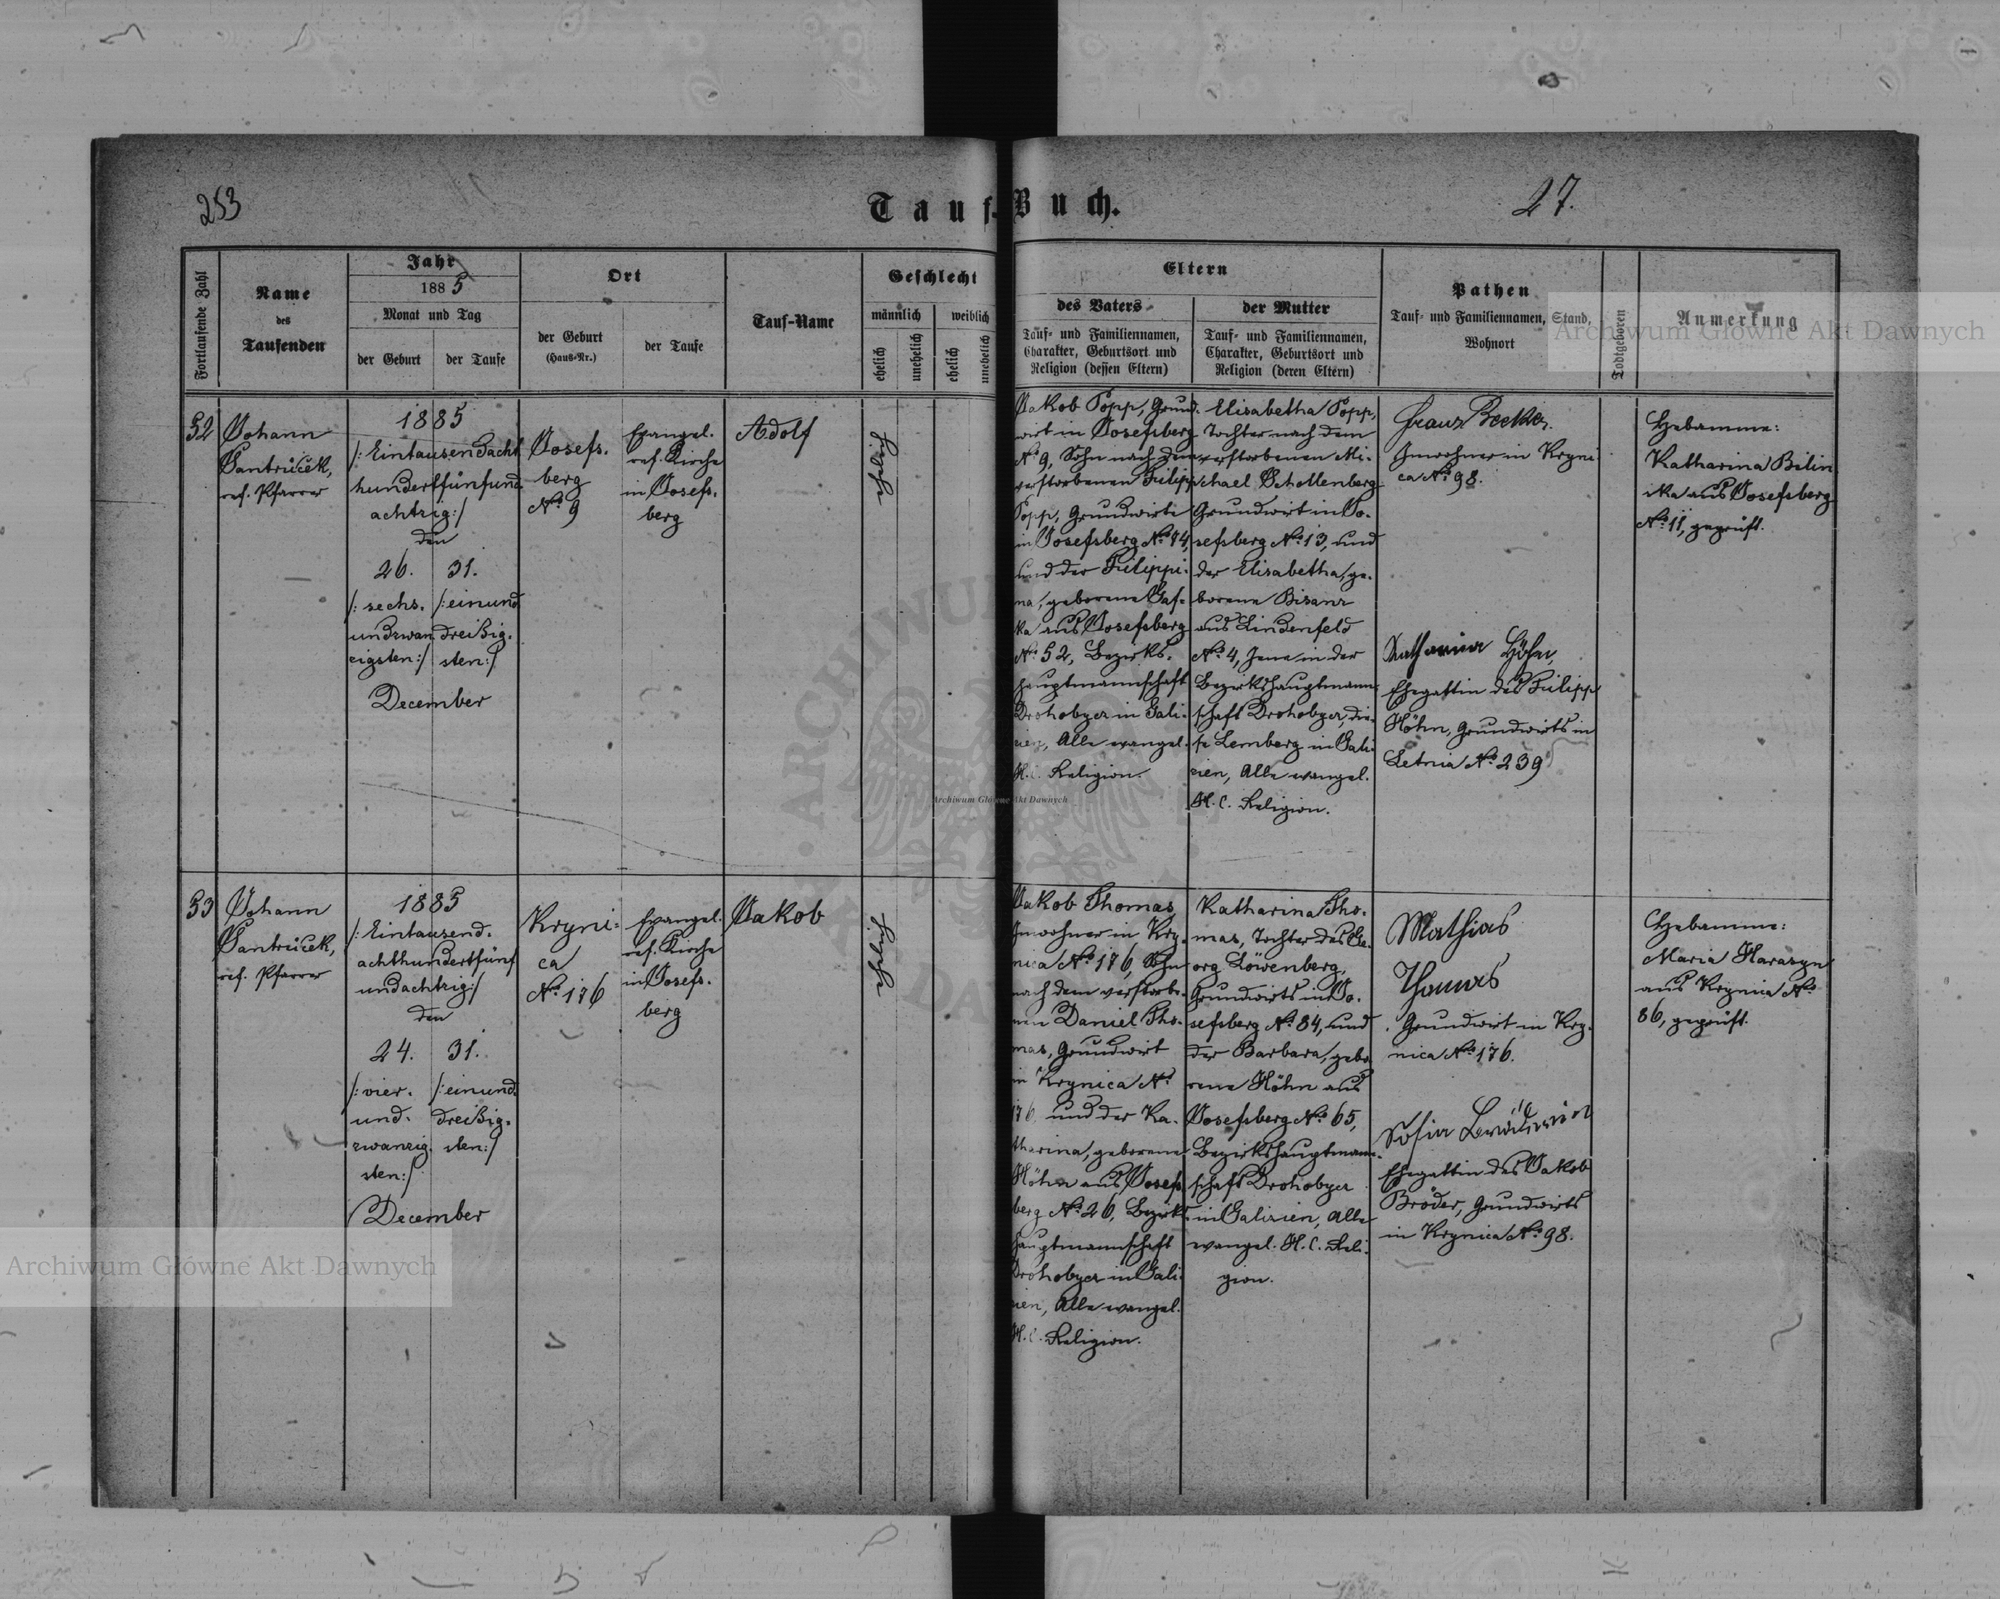 253
Tauf-Buch.
27.
Fortlaufende Zahl
Name
des
Taufenden
Jahr
1885
Monat und Tag
der Geburt
der Taufe
Ort
der Geburt
(Haus-Nr.)
der Taufe
Tauf-Name
Geschlecht
männlich
weiblich
ehelich
unehelich
ehelich
unehelich
Eltern
des Vaters
Tauf- und Familiennamen,
Charakter, Geburtsort und
Religion (dessen Eltern)
der Mutter
Tauf- und Familiennamen,
Charakter, Geburtsort und
Religion (deren Eltern)
Pathen
Tauf- und Familiennamen, Stand,
Wohnort
Todtgeboren
Anmerkung
52
Johann
Jantrůček,
ref. Pfarrer
1885
/: Eintausendacht
hundertfünfund
achtzig :/
den
26.
/: sechs.
undzwan
zigsten :/
31.
/: einund
dreißig-
sten :/
December
Josefs-
berg
No 9
Evangel.
ref. Kirche
in Josefs-
berg
Adolf
ehelich
Jakob Popp, Grund-
wirt in Josefsberg
No 9, Sohn nach dem
verstorbenen Filipp
Popp, Grundwirts
in Josefsberg No 74,
und der Filippi-
na, geborene
aus Josefsberg
No 52, Bezirks-
hauptmannschaft
Drohobycz in Gali-
zien, Alle evangel.
H. C. Religion.
Elisabetha Popp,
Tochter nach dem
verstorbenen Mi-
chael Schollenberg
Grundwirt in Jo-
sefsberg No 13, und
der Elisabetha, ge-
borene Bisanz
aus Lindenfeld
No 4, Jene in der
Bezirkshauptmann-
schaft Drohobycz, die-
se Lemberg in Gali-
zien, Alle evangel.
H. C. Religion.
Franz Becker.
Inwohner in Kryni
ca No 98.
Katharina Höhn,
Ehegattin des Filipp
Höhn, Grundwirts in
Letnia No 239
Hebamme:
Katharina Bilin
ska aus Josefsberg
No 11, geprüft.
53
Johann
Jantrůček,
ref. Pfarrer
1885
/: Eintausend-
achthundertfünf
undachtzig :/
den
24.
/: vier-
und-
zwanzig-
sten :/
31.
/: einund
dreißig-
sten :/
December
Kryni-
ca
No 176
Evangel.
ref. Kirche
in Josefs-
berg
Jakob
ehelich
Jakob Thomas,
Inwohner in Kry-
nica No 176, Sohn
nach dem verstorbe-
nen Daniel Tho-
mas, Grundwirt
in Krynica No
176 und der Ka-
tharina, geborene
Höhn aus Josefs
berg No 26, Bezirks
hauptmannschaft
Drohobycz in Gali-
zien, Alle evangel.
H. C. Religion.
Katharina Tho-
mas, Tochter des Ge-
org Löwenberg,
Grundwirts in Jo-
sefsberg No 84, und
der Barbara, gebo-
rene Höhn aus
Josefsberg No 65,
Bezirkshauptmann-
schaft Drohobycz
in Galizien, Alle
evangel. H. C. Reli-
gion.
Mathias
Thomas
Grundwirt in Kry-
nica No 176.
Sofia
Ehegattin des Jakob
Bröder, Grundwirts
in Krynica No 98.
Hebamme:
Maria Harasyn
aus Krynica No
86, geprüft.
Archiwum Główne Akt Dawnych
Archiwum Główne Akt Dawnych
Archiwum Główne Akt Dawnych